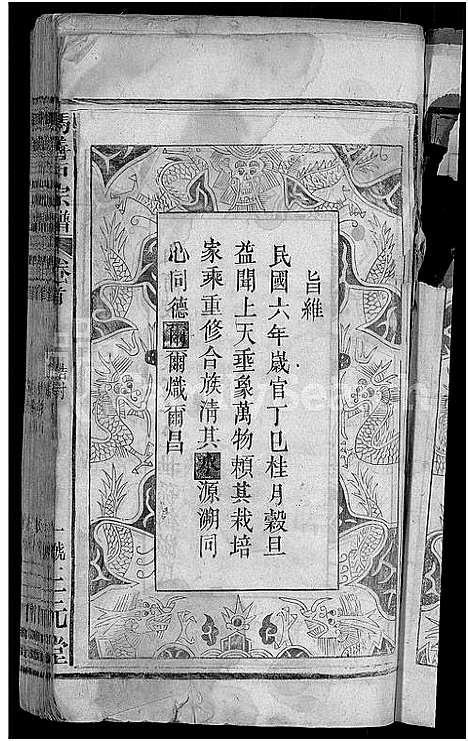 旨維
民國六年歲官丁巳桂月穀旦
益聞上天垂象萬物頼其栽培
家乘重修合族清其水源溯同
心同德爾爾熾爾昌
宗譜 卷首
誥封
三元堂